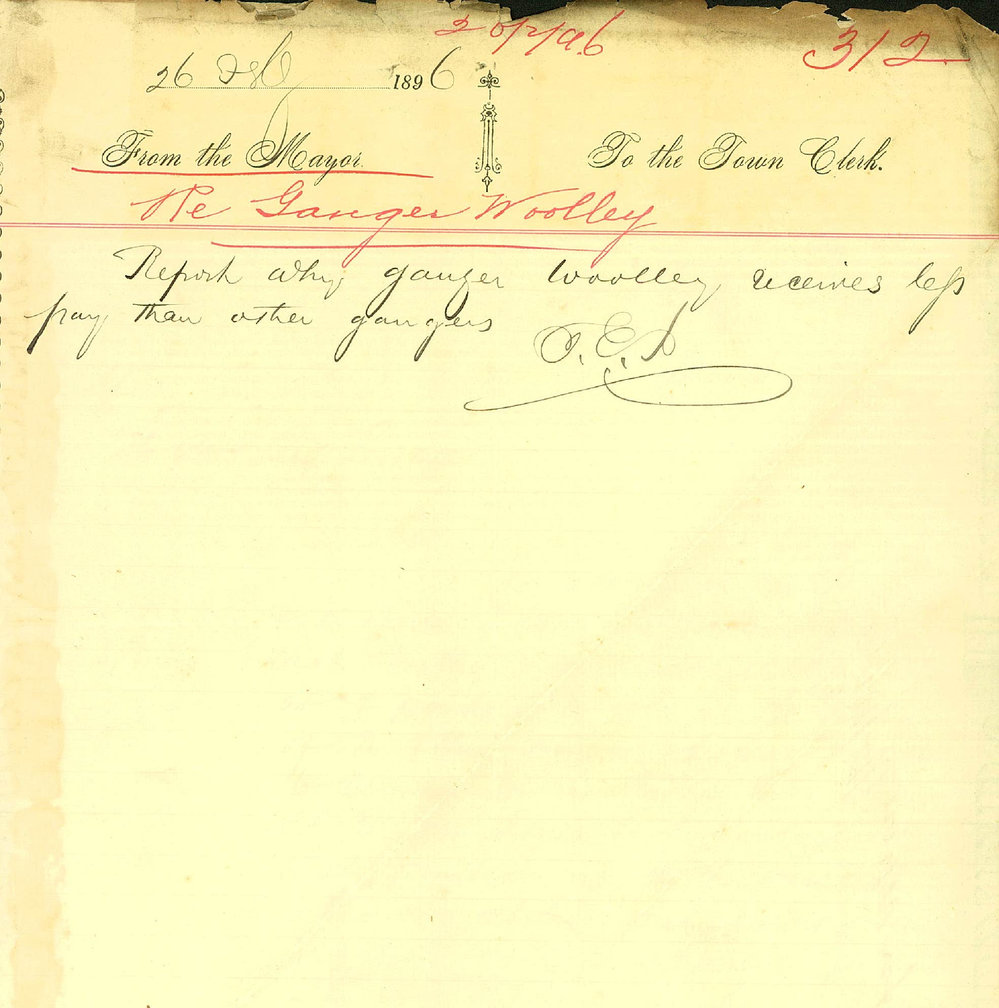 312
26 1896
From the Mayor. To the Town Clerk.
Re Ganger Woolley
Report why ganger Woolley receives less
pay than other gangers